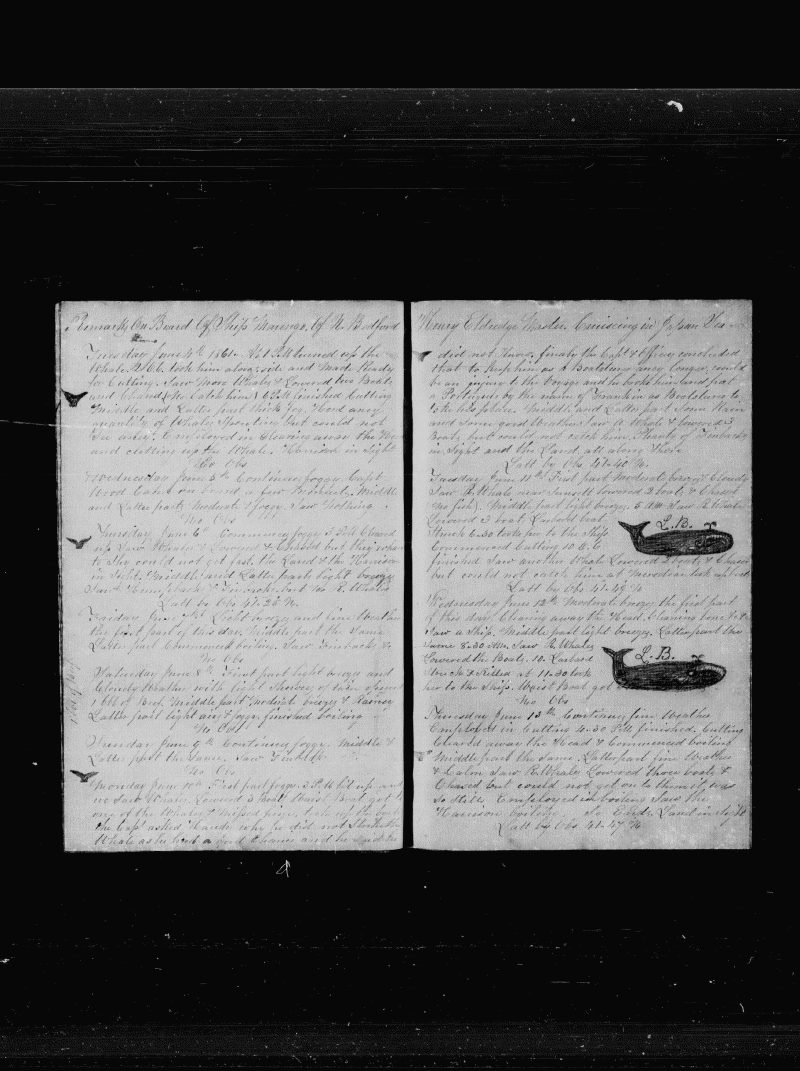 Remarks On Board Of Ship Marengo Of N. Bedford
Tuesday June 4th 1861. At 1 P.M turned up the
Whale. took him alongside and Made Ready
for Cutting. Saw More Whales & Lowered two Boats
and Chased No Catch him. 6 P.M finished Cutting
Middle and Latter part thick fog. Heard any
quantity of Whales Spouting but could not
See any. Employed in Clearing away the
and cutting up the Whale. Harrison in Sight
No Obs
Wednesday June 5th Continues foggy. Capt
Wood Came on board a few Moments. Middle
and Latter part Moderate & foggy. Saw Nothing
No Obs
Thursday June 6th Commences foggy. 3 P.M Cleared
up Saw Whales & Lowered & Chased but they
so Shy could not get fast. the Land & the Harrison
in Sight. Middle and Latter part light breezes
Saw Humpback & Finbacks but No R. Whales
Latt by Obs 47.25 N.
Friday June 7th Light breezes and fine Weather
the first part of this day. Middle part the Same
Latter part Commenced boiling. Saw Finbacks &
No Obs
Saturday June 8th First part light breezes and
Cloudy Weather with light Showers of rain opened
1 bbl of Beef. Middle part Moderate breezes & Rainey
Latter part light airs & foggy. finished boiling
No Obs
Sunday June 9th Continues foggy. Middle &
Latter part the Same. Saw
No Obs
Monday June 10th First part foggy. 3 P.M lit up and
we Saw Whales. Lowered 3 Boats, Waist Boat got to
one of the Whales & Missed
the Capt asked Kanaka why he did not Strike the
Whale as he had a good Chance and he said he
Henry Eldredge Master. Cruising in Japan Sea
did not Know. finaly the Capt & Officers concluded
that to Keep him as a Boatsteerer any longer, would
be an injury to the Voyage and he broke him and put
a Portugues by the name of Frank in as Boatsteerer to
take his place. Middle and Latter part Some Rain
and Some good Weather. Saw a Whale & lowered 3
Boats but could not catch him. Plenty of Finbacks
in Sight and the Land all along Shore
Latt by Obs 47.40 N.
Tuesday June 11th First part Moderate breezes & Cloudy
Saw R. Whale near Sunsett lowered 2 boats, & Chased
(no fish). Middle part light breezes. 5 AM Saw R. Whales
Lowered 3 boats Larboard boat
Struck 6.30 took him to the Ship
L. B.
Commenced Cutting 10 A.M
finished. Saw another Whale Lowered 2 boats & Chased
but could not catch him
Latt by Obs 47.49 N
Wednesday June 12th Moderate breezes the first part
of this day. Clearing away the Head. Cleaning bone &c
Saw a Ship. Middle part light breezes. Latter part the
Same 8.30 AM. Saw R. Whales
Lowered the Boats. 10. Larboard
L. B.
Struck & Killed at 11.30 took
her to the Ship. Waist Boat got
No Obs
Thursday June 13th Continues fine Weather
Employed in Cutting 4.30 P.M finished. Cutting
Cleared away the Head & Commenced boiling
Middle part the Same. Latter part fine Weather
& Calm Saw R. Whales Lowered three boats, &
Chased but could not get on to them it was
So Still. Employed in boiling. Saw the
Harrison boiling. So Ends. Land in Sight
Latt by Obs 47.47 N